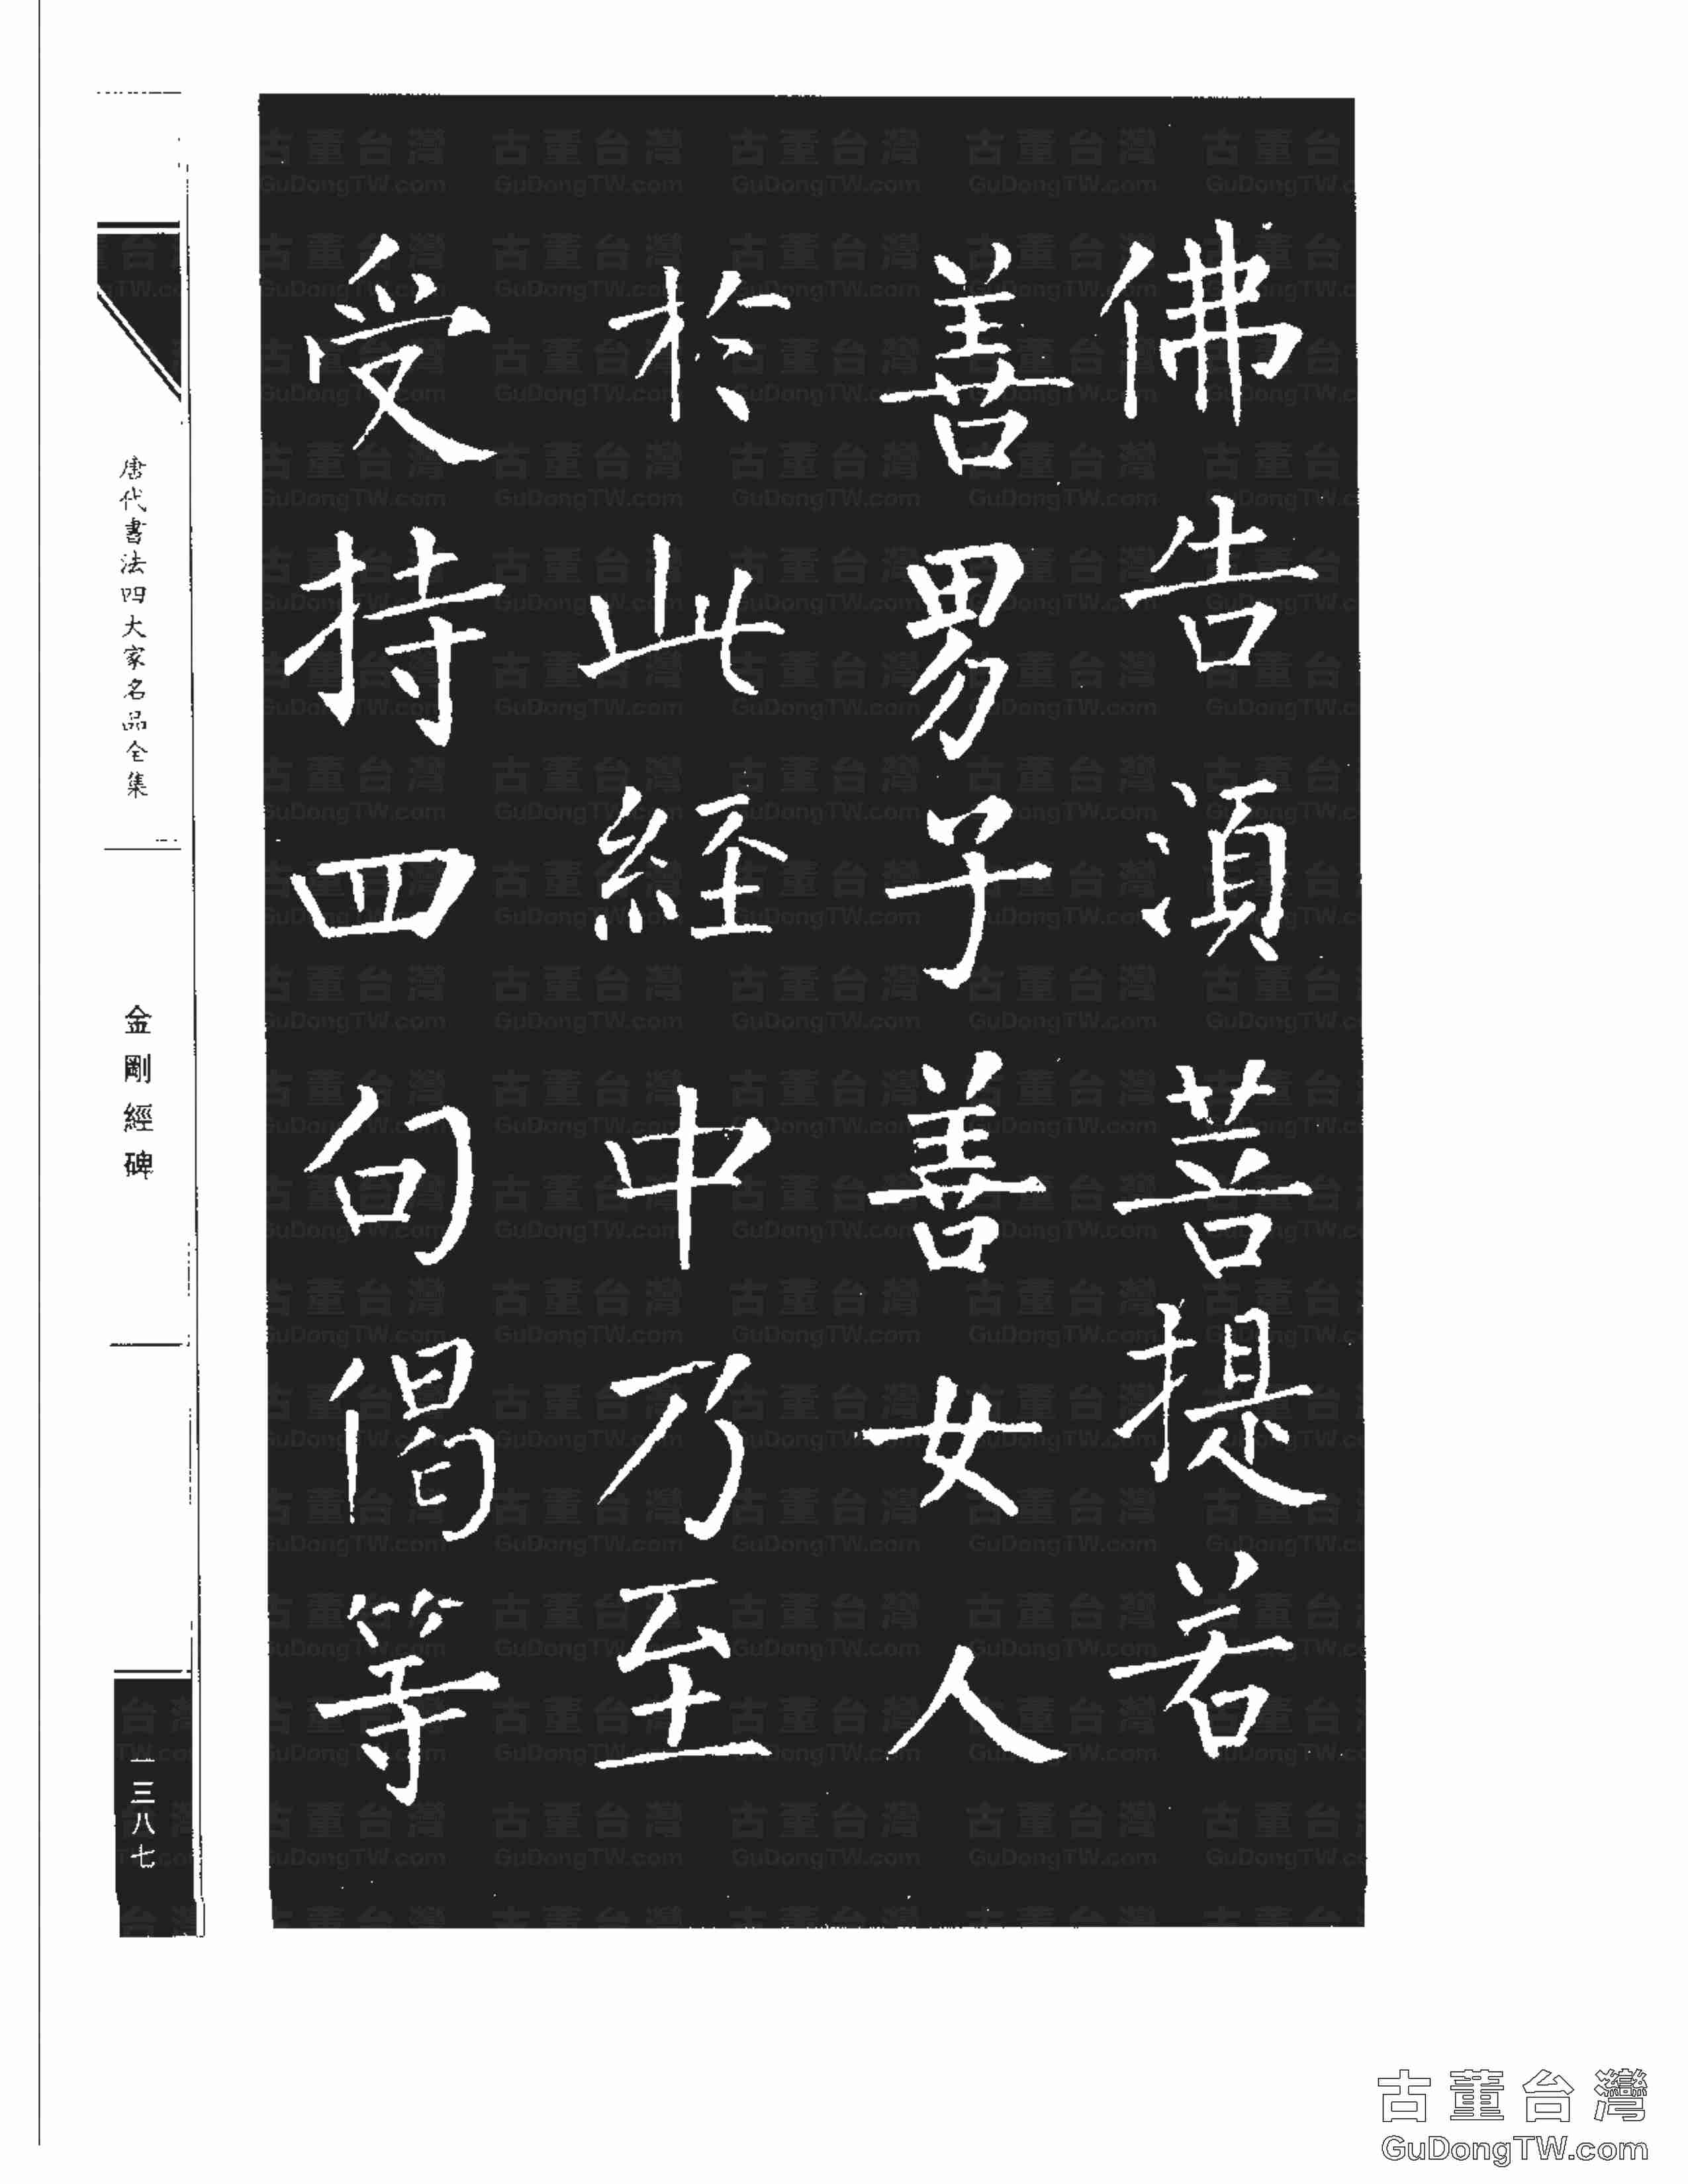 佛告湏菩提若
善男子善女人
於此経中乃至
受持四句偈等
唐代書法四大家名品全集
金剛經碑
一三八七
古董台灣
GuDongTW.com